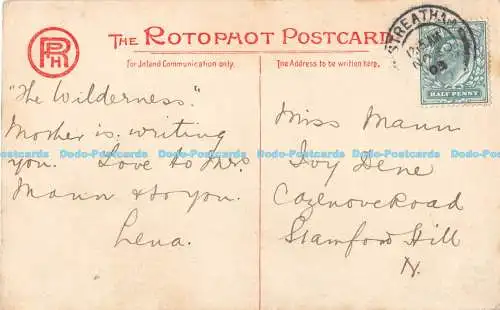 THE ROTOPHOT POSTCARD
For Inland Communication only.
The Address to be written here.
RPH
STREATHAM
HALF PENNY
"The Wilderness."
Mother is writing
you. Love to Mrs
Mann & to you.
Lena.
Miss Mann
Ivy Dene
Cazenove Road
Stamford Hill
N.
Dodo-Postcards Dodo-Postcards Dodo-Postcards Dodo-Postcards Dodo-Postcards